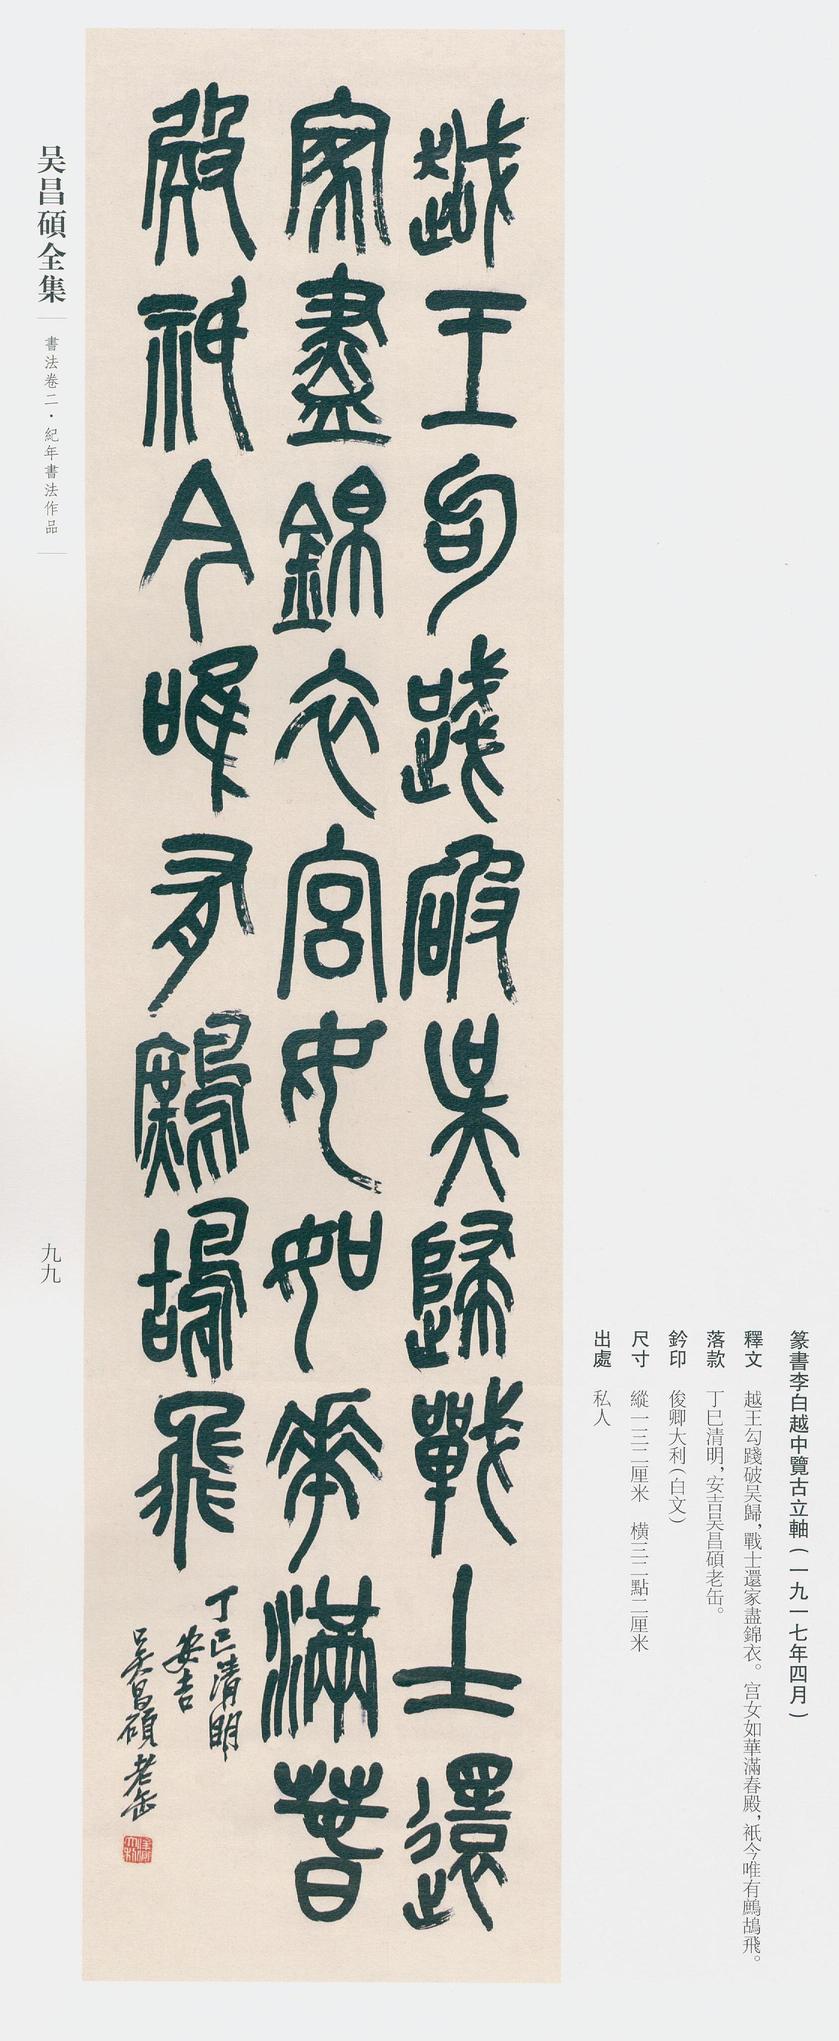 篆書李白越中覽古立軸(一九一七年四月)
釋文 越王勾踐破吴歸,戰士還家盡錦衣。宫女如華滿春殿,祇今唯有鷓鴣飛。
落款 丁巳清明,安吉吴昌碩老缶。
鈐印 俊卿大利(白文)
尺寸 縱一三二厘米 横三二點二厘米
出處 私人
越王句踐破吴歸戰士還
家盡錦衣宫女如華滿春
殿祇今唯有鷓鴣飛
丁巳清明
安吉
吴昌碩老缶
俊卿大利
吴昌碩全集
書法卷二·紀年書法作品
九九